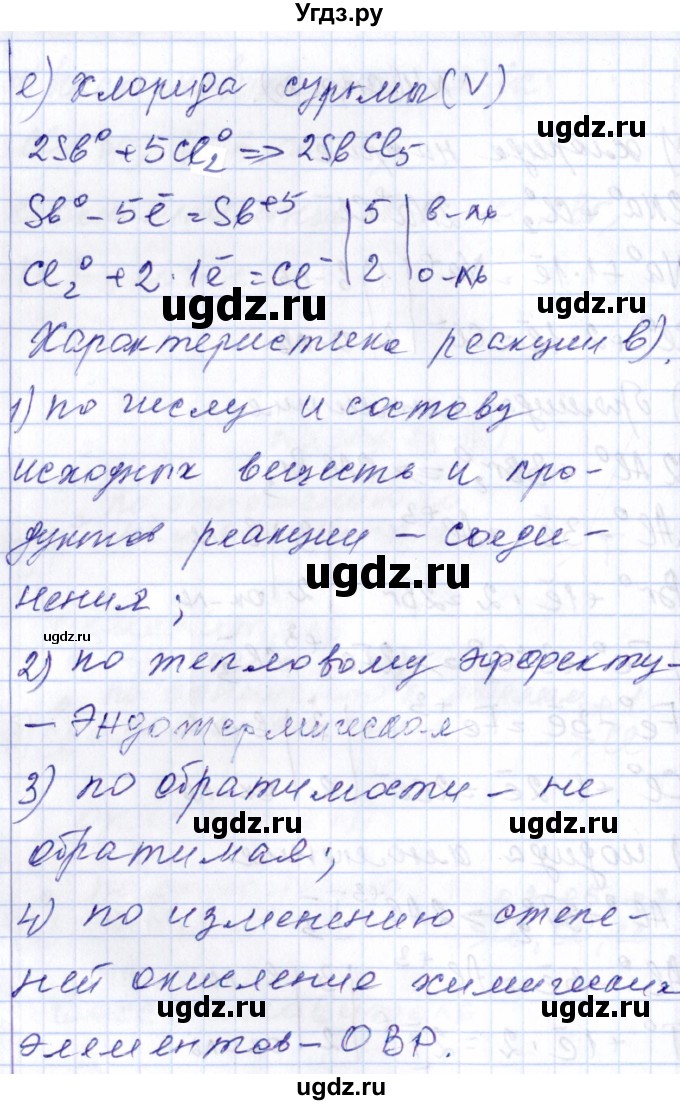 Угдз.ру
е) хлорида сурьмы (V)
2Sb⁰ + 5Cl₂⁰ => 2SbCl₅
Sb⁰ - 5ē = Sb⁺⁵ | 5 | в-ль
Cl₂⁰ + 2·1ē = Cl⁻ | 2 | о-ль
ugdz.ru
Характеристика реакции в).
1) по числу и составу
ugdz.ru
исходных веществ и про-
дуктов реакции – соеди-
ugdz.ru
нения;
ugdz.ru
2) по тепловому эффекту –
– эндотермическая
3) по обратимости – не
ugdz.ru
ugdz.ru
обратимая;
4) по изменению степе-
ugdz.ru
ней окисление химических
элементов – ОВР.
ugdz.ru
ugdz.ru